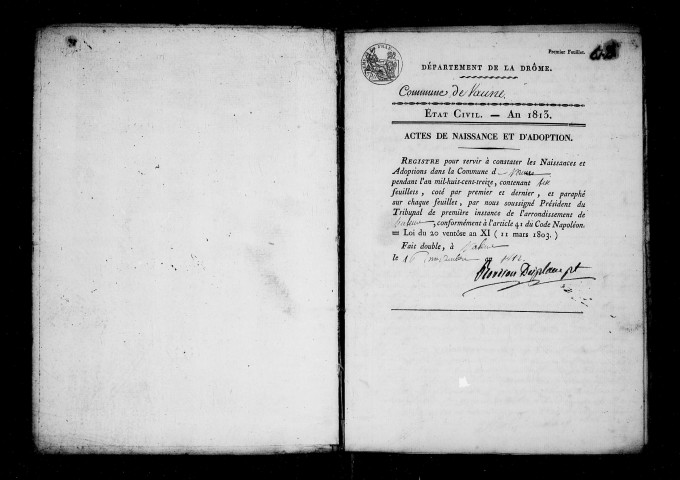 Premier Feuillet.
DÉPARTEMENT DE LA DRÔME.
Commune de
ÉTAT CIVIL. — AN 1813.
ACTES DE NAISSANCE ET D'ADOPTION.
REGISTRE pour servir à constater les Naissances et
Adoptions dans la Commune d
pendant l'an mil-huit-cent-treize, contenant
feuillets, coté par premier et dernier, et paraphé
sur chaque feuillet, par nous soussigné Président du
Tribunal de première instance de l'arrondissement de
, conformément à l'article 41 du Code Napoléon.
= Loi du 20 ventôse an XI ( 11 mars 1803. )
Fait double, à
le 1 an 1812